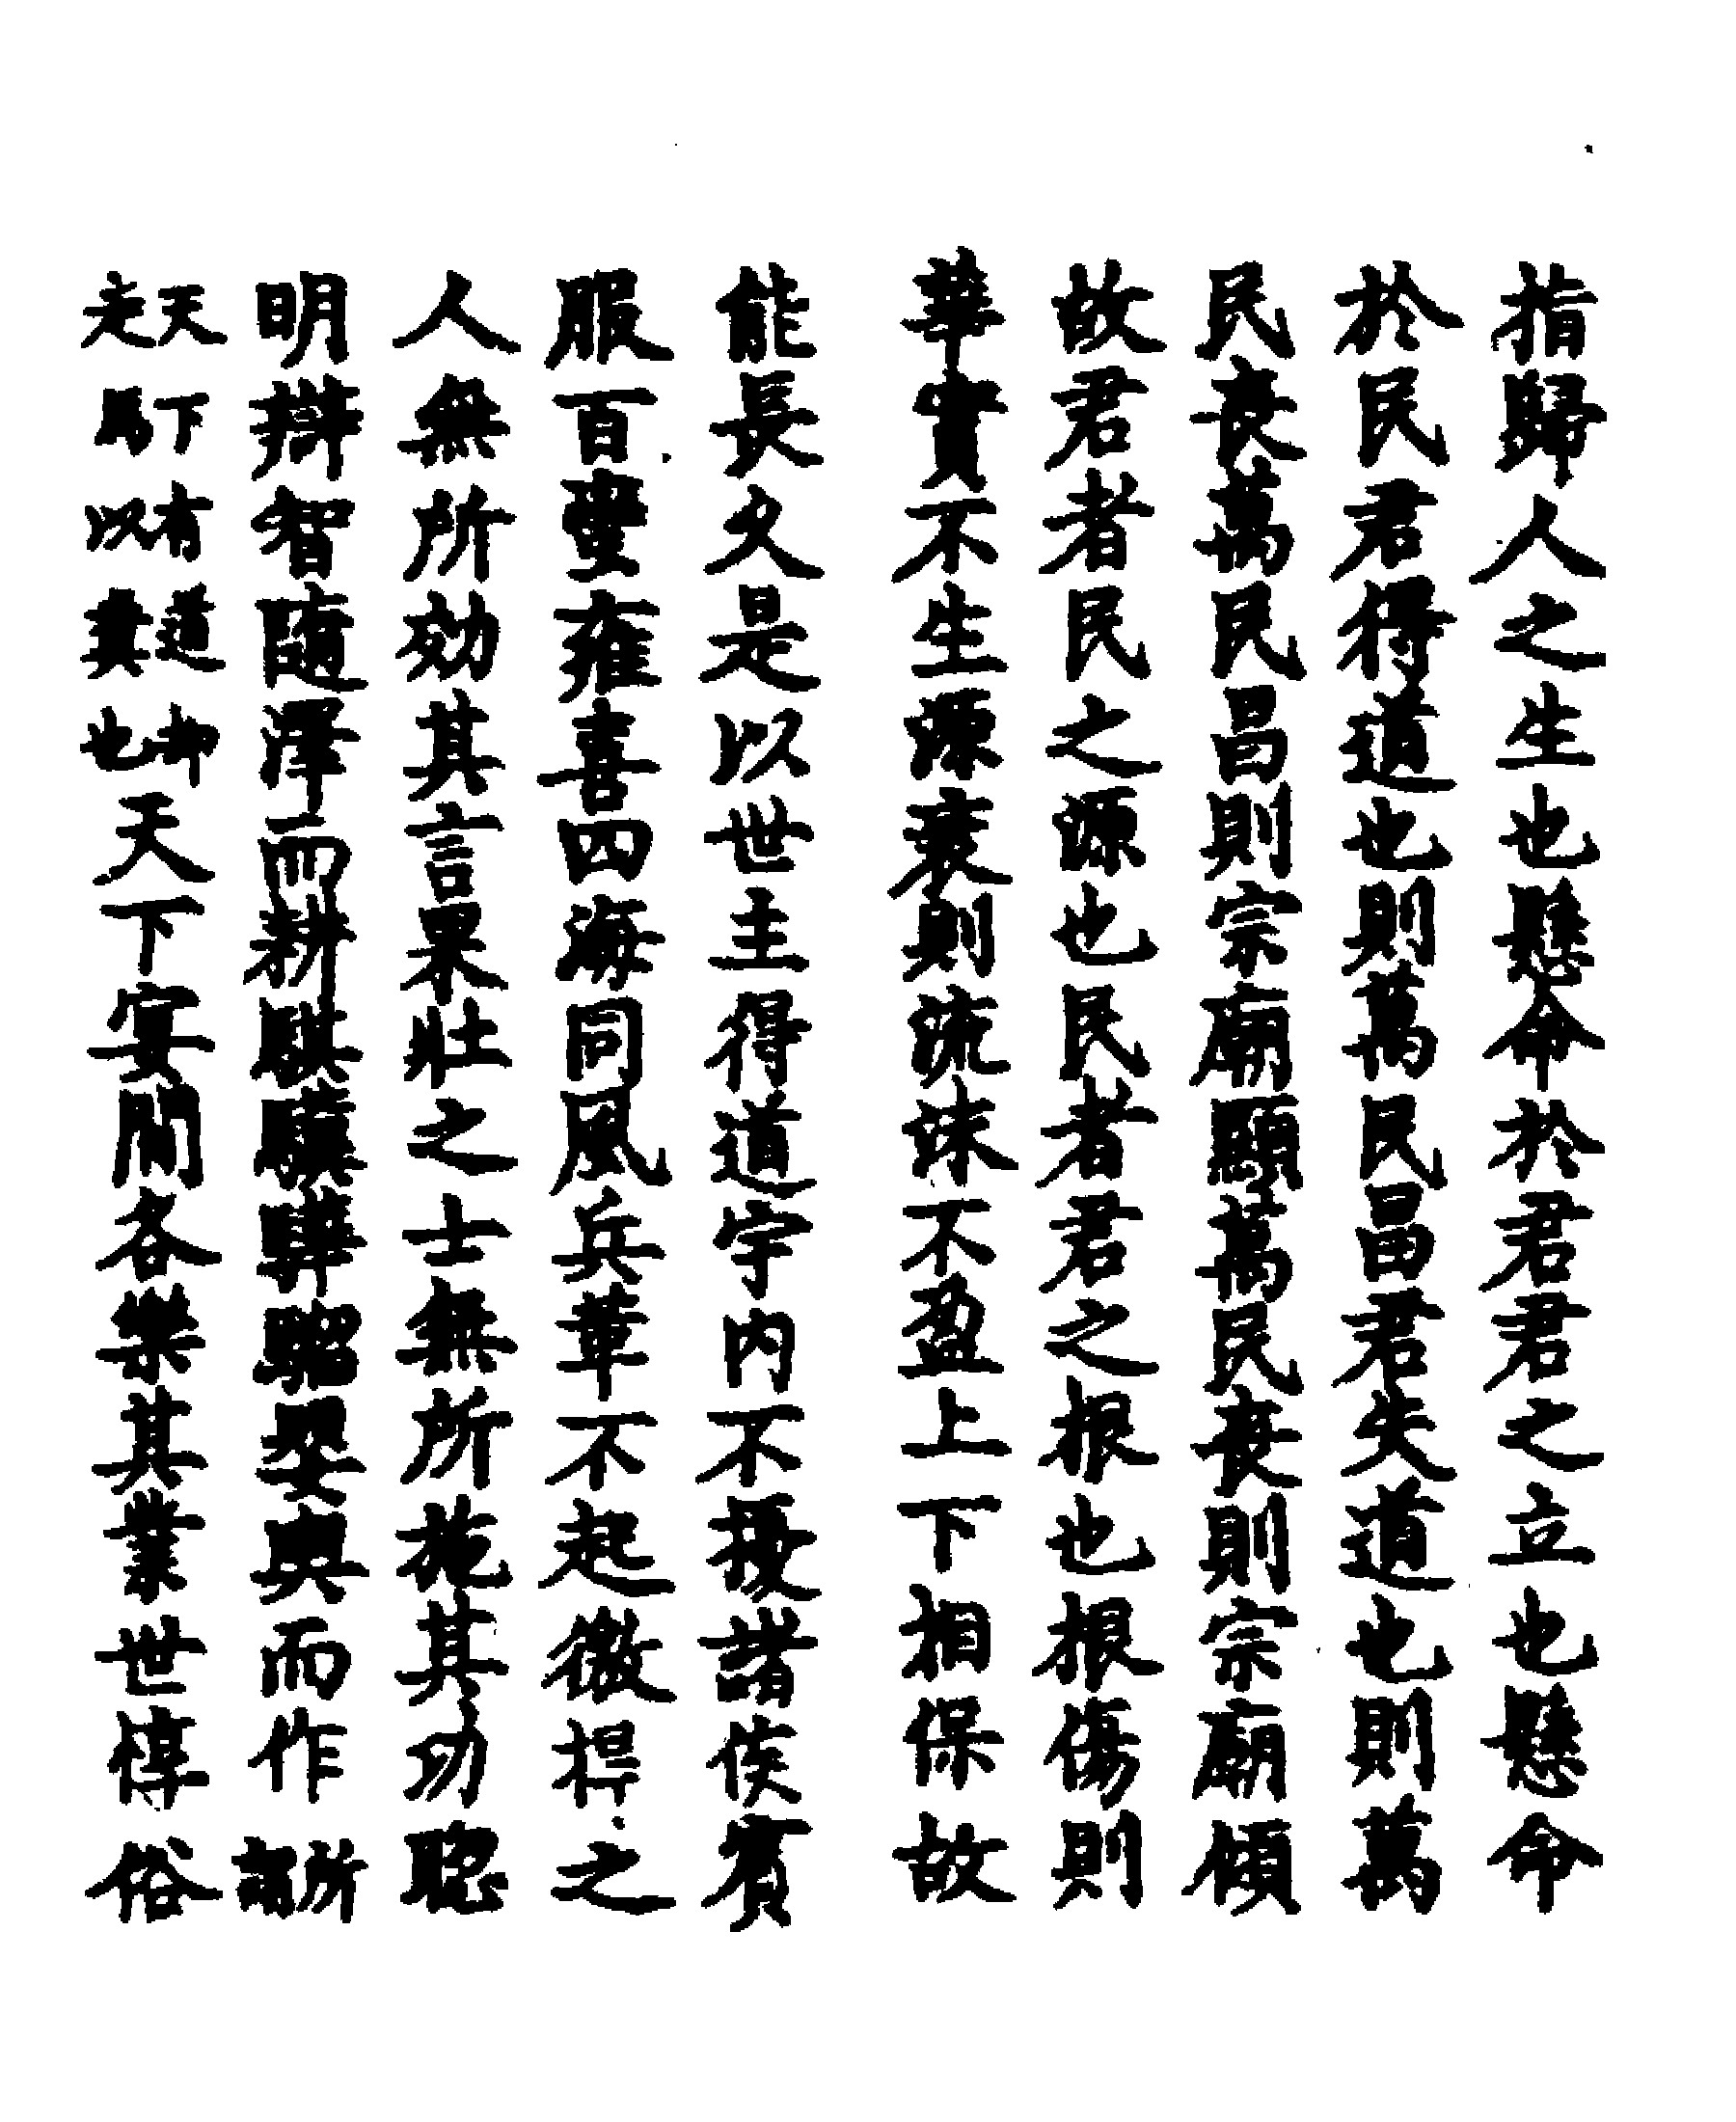 指歸人之生也懸命於君君之立也懸命
於民君得道也則萬民昌君失道也則萬
民喪萬民昌則宗廟顯萬民喪則宗廟傾
故君者民之源也民者君之根也根傷則
華實不生源衰則流沫不盈上下相保故
能長久是以世主得道宇内不擾諸侯賓
服百蠻雍喜四海同風兵革不起徼捍之
人無所効其言果壯之士無所施其功聡
明辯智随澤而耕騏驥驊騮嬰輿而作所謂
天下有道却走馬以糞也天下宴閒各樂其業世惇俗